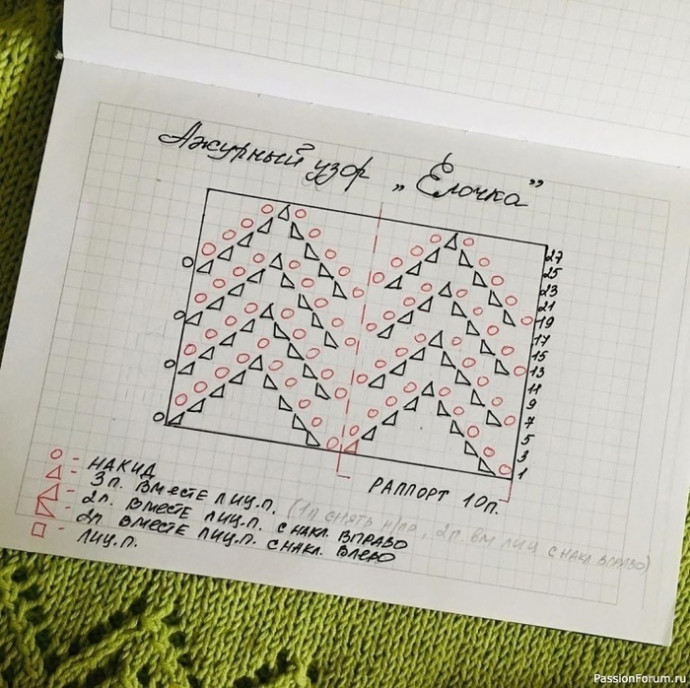 Ажурный узор „Ёлочка"
27
25
23
21
19
17
15
13
11
9
7
5
3
1
РАППОРТ 10п.
- НАКИД
- 3п. ВМЕСТЕ ЛИЦ.П. (1п СНЯТЬ Н/ПР, 2п. ВМ ЛИЦ С НАКЛ ВПРАВО)
- 2п. ВМЕСТЕ ЛИЦ.П. С НАКЛ. ВПРАВО
- 2п ВМЕСТЕ ЛИЦ.П. С НАКЛ. ВЛЕВО
- ЛИЦ.П.
PassionForum.ru